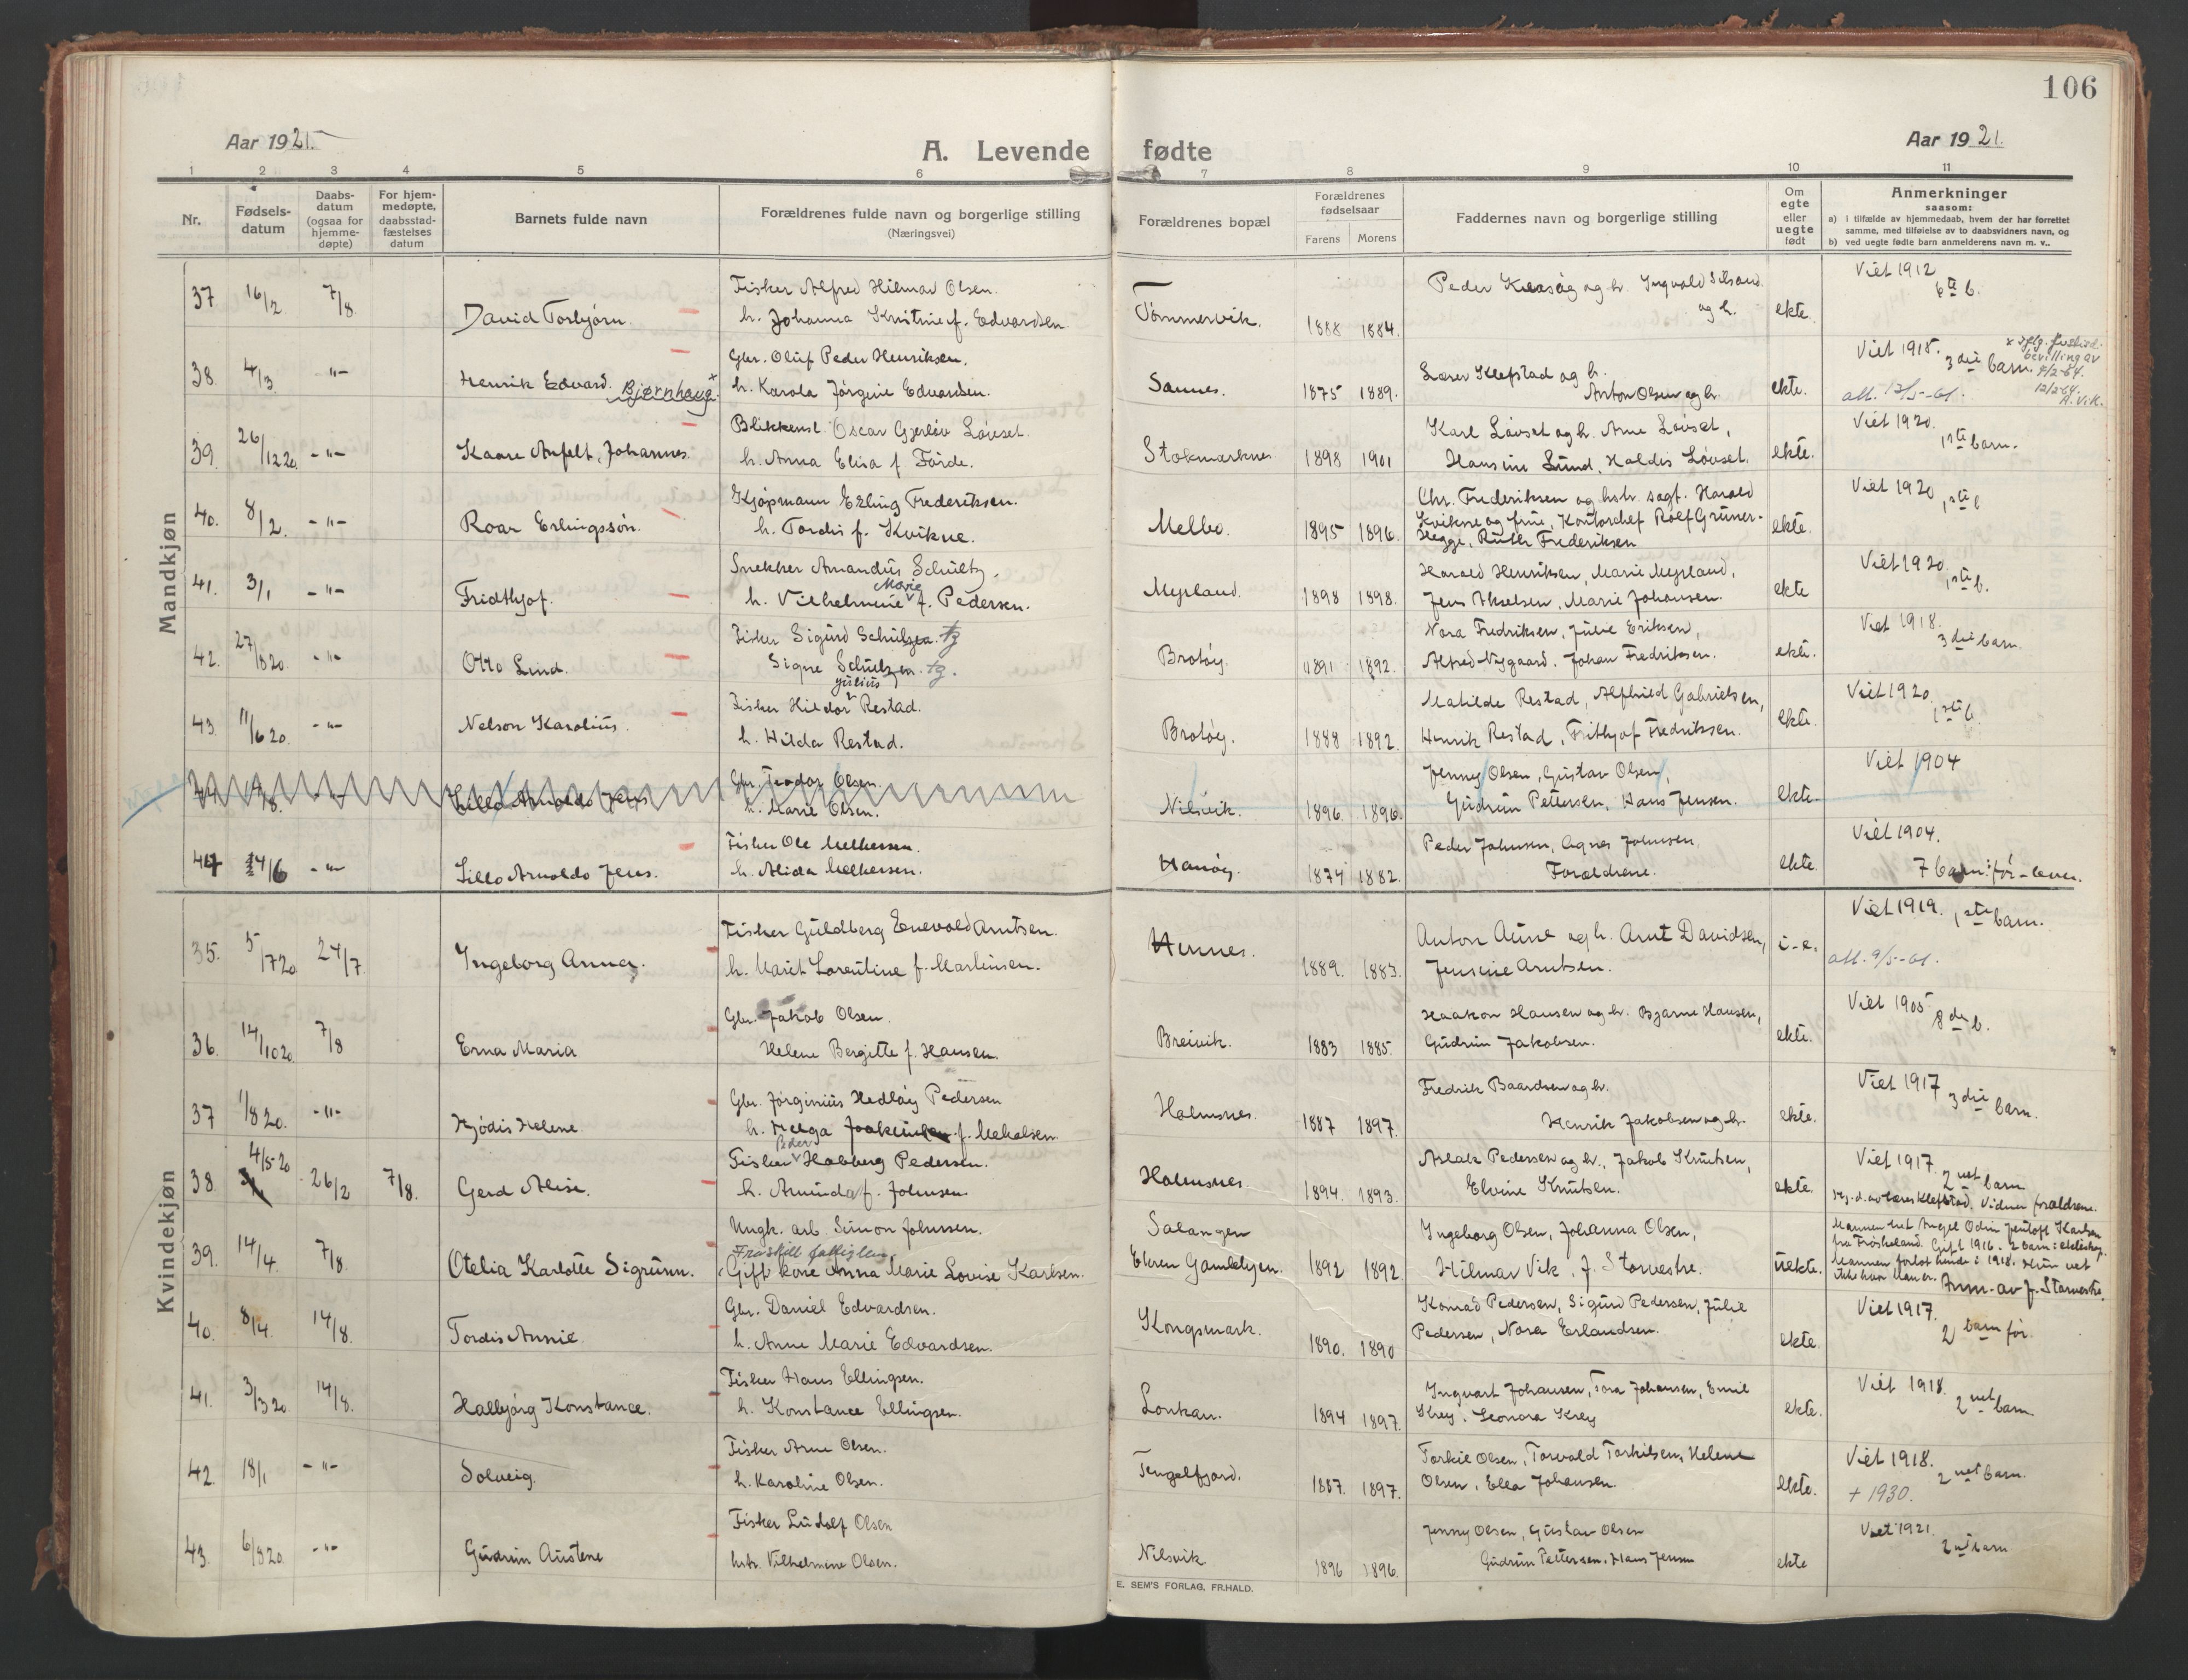 106
Aar 1921.
A. Levende fødte
Aar 1921.
1 2 3 4 5 6 7 8 9 10 11
Nr.
Fødsels-
datum
Daabs-
datum
(ogsaa for
hjemme-
døpte)
For hjem-
medøpte,
daabsstad-
fæstelses
datum
Barnets fulde navn
Forældrenes fulde navn og borgerlige stilling
(Næringsvei)
Forældrenes bopæl
Forældrenes
fødselsaar
Farens Morens
Faddernes navn og borgerlige stilling
Om
egte
eller
uegte
født
Anmerkninger
saasom:
a) i tilfælde av hjemmedaab, hvem der har forrettet
samme, med tilføielse av to daabsvidners navn, og
b) ved uegte fødte barn anmelderens navn m. v..
Mandkjøn
37 16/2 7/8 David Torbjørn.
Fisker Alfred Hilmar Olsen.
h. Johanna Kristine f. Edvardsen
Tømmervik. 1888 1884.
og h. Ingvald
og h.
ekte.
Viet 1912
6te b.
38 4/3 -"- Henrik Edvard. Bjørnhaug x
Gbr. Oluf Peder Henriksen.
h. Karola Jörgine Edvardsen.
Sannes. 1875 1889.
Lærer Klefstad og h.
Anton Olsen og h.
ekte.
Viet 1915.
3die barn.
x iflg. justisd.
bevilling av
4/2-64.
12/2-64.
A. Vik.
att. 12/5-61.
39. 26/12 20. -"- Kaare Anfelt, Johannes.
Blikkensl. Oscar Gjerløv Løvset.
h. Anna Elisa f. Förde.
Stokmarknes 1898 1901
Karl Løvset og h. Arne Løvset,
Hansine Lund, Haldis Løvset.
ekte.
Viet 1920.
1ste barn.
40. 8/2. -"- Roar Erlingssøn.
Kjøpmann Erling Frederiksen.
h. Tordis f. Kvikne.
Melbo. 1895 1896.
Chr. Frederiksen og hstr. sagf. Harald
Kvikne og frue, Kontorchef Rolf Grüner-
Hegge, Ruth Frederiksen
ekte.
Viet 1920
1ste b
41. 3/1 -"- Fridthjof.
Snekker Amandus Schultz.
h. Vilhelmine Marie f. Pedersen.
Myrland. 1898 1898.
Harald Henriksen, Marie Myrland,
Jens Akselsen, Marie Johansen.
ekte
Viet 1920.
1ste b.
42. 27/8 20. -"- Otto Lind.
Fisker Sigurd Schulzen. tz
Signe Schulzen. tz.
Brotøy. 1891 1892.
Nora Fredriksen, Julie Eriksen,
Alfred Nygaard. Johan Fredriksen.
ekte.
Viet 1918.
3die barn.
43. 11/6 20. -"- Nelson Karolius.
Fisker Hildor Julius Restad.
h. Hilda Restad.
Brotøy. 1888 1892.
Matilde Restad, Alfhild Gabrielsen,
Henrik Restad, Frithjof Fredriksen.
ekte.
Viet 1920.
1ste b.
44 -"- Lillo Arnoldo Jens
Gbr. Teodor Olsen.
h. Marie Olsen.
Nilsvik. 1896. 1896.
Jenny Olsen, Gustav Olsen,
Gudrun Pettersen, Hans Jensen.
ekte.
Viet 1904
44 14/6 -"- Lillo Arnoldo Jens.
Fisker Ole Melkersen.
h. Alida Melkersen.
Hanøy. 1874 1882.
Peder Johnsen, Agnes Johnsen,
Forældrene.
ekte
Viet 1904.
7 barn: før - lever.
Kvindekjøn
35. 5/7 20 24/7. Ingeborg Anna.
Fisker Guldberg Enevold Arntsen.
h. Marit Lorentine f. Martinsen.
Hennes. 1889. 1883.
Anton Aune og h. Arnt Davidsen,
Jensine Arntsen.
i-e.
Viet 1919. 1ste barn.
att. 9/5-61.
36. 14/10 20. 7/8 Erna Maria
Gbr. Jakob Olsen.
Helene Bergitte f. Hansen.
Breivik. 1883 1885.
Haakon Hansen og h. Bjarne Hansen,
Gudrun Jakobsen.
ekte.
Viet 1905
8de b.
37 1/8 20. -"- Hjödis Helene.
Gbr. Jörginius Hedløiy Pedersen
h. Helga f. Mekalsen.
Holmsnes. 1887 1897.
Fredrik Baardsen og h.
Henrik Jakobsen og h.
ekte.
Viet 1917
3die barn.
38. 4/5-20 26/2 7/8. Gerd Alise.
Fisker Peder Habberg Pedersen.
h. Amanda f. Johnsen.
Holmsnes. 1894. 1893.
Aslak Pedersen og h., Jakob Knutsen,
Elvine Knutsen.
ekte.
Viet 1917.
2net barn
Hj. d. av lærer Klefstad. Vidner forældrene.
39. 14/4. 7/8. Otelia Karlotte Sigrunn.
Ungk. arb. Simon Johnsen.
Fraskilt
Gift kone Anna Marie Lovise Karlsen.
Salangen
Elven Gamlebyen. 1892 1892.
Ingeborg Olsen, Johanna Olsen,
Hilmar Vik, J. Storvestre.
uekte.
Mannen het Angel Odin Karlsen
fra Frøskeland. Gift 1916. 2 barn i ekteskap.
Mannen forlot hende i 1918. Hun vet
ikke hvor han er. Anm. av J. Storvestre.
40. 8/4. 14/8. Tordis Annie.
Gbr. Daniel Edvardsen.
h. Anne Marie Edvardsen.
Kongsmark. 1890. 1890
Konrad Pedersen, Sigurd Pedersen, Julie
Pedersen, Nora Erlandsen.
ekte.
Viet 1917.
2 barn før.
41. 3/3 20. 14/8. Halbjörg Konstance.
Fisker Hans Ellingsen.
h. Konstance Ellingsen.
Lonkan. 1894 1897.
Ingvart Johansen, Tora Johansen, Emil
Krey, Leonora Krey
ekte.
Viet 1918.
2net barn
42. 18/1 -"- Solveig.
Fisker Arne Olsen.
h. Karoline Olsen.
Tengelfjord. 1887. 1897.
Torkil Olsen, Torvald Torkilsen, Helene
Olsen, Ella Johansen.
ekte.
Viet 1918.
2net barn.
+ 1930.
43. 6/8 20. -"- Gudrun Austene
Fisker Ludolf Olsen
hstr. Vilhelmine Olsen.
Nilsvik 1896 1896.
Jenny Olsen, Gustav Olsen
Gudrun Pettersen, Hans Jensen
ekte
Viet 1921.
2net barn
E. SEM'S FORLAG, FR.HALD.